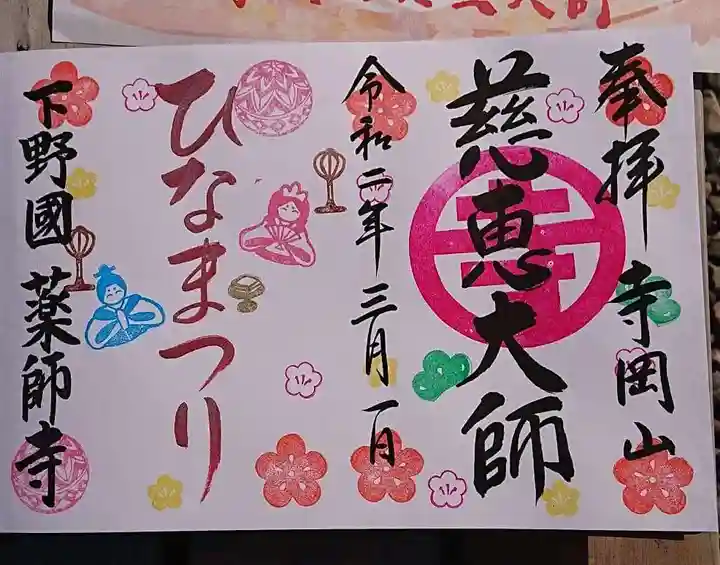 奉拝 寺岡山
慈恵大師
寺
令和二年三月一日
ひなまつり
下野國 薬師寺
大師